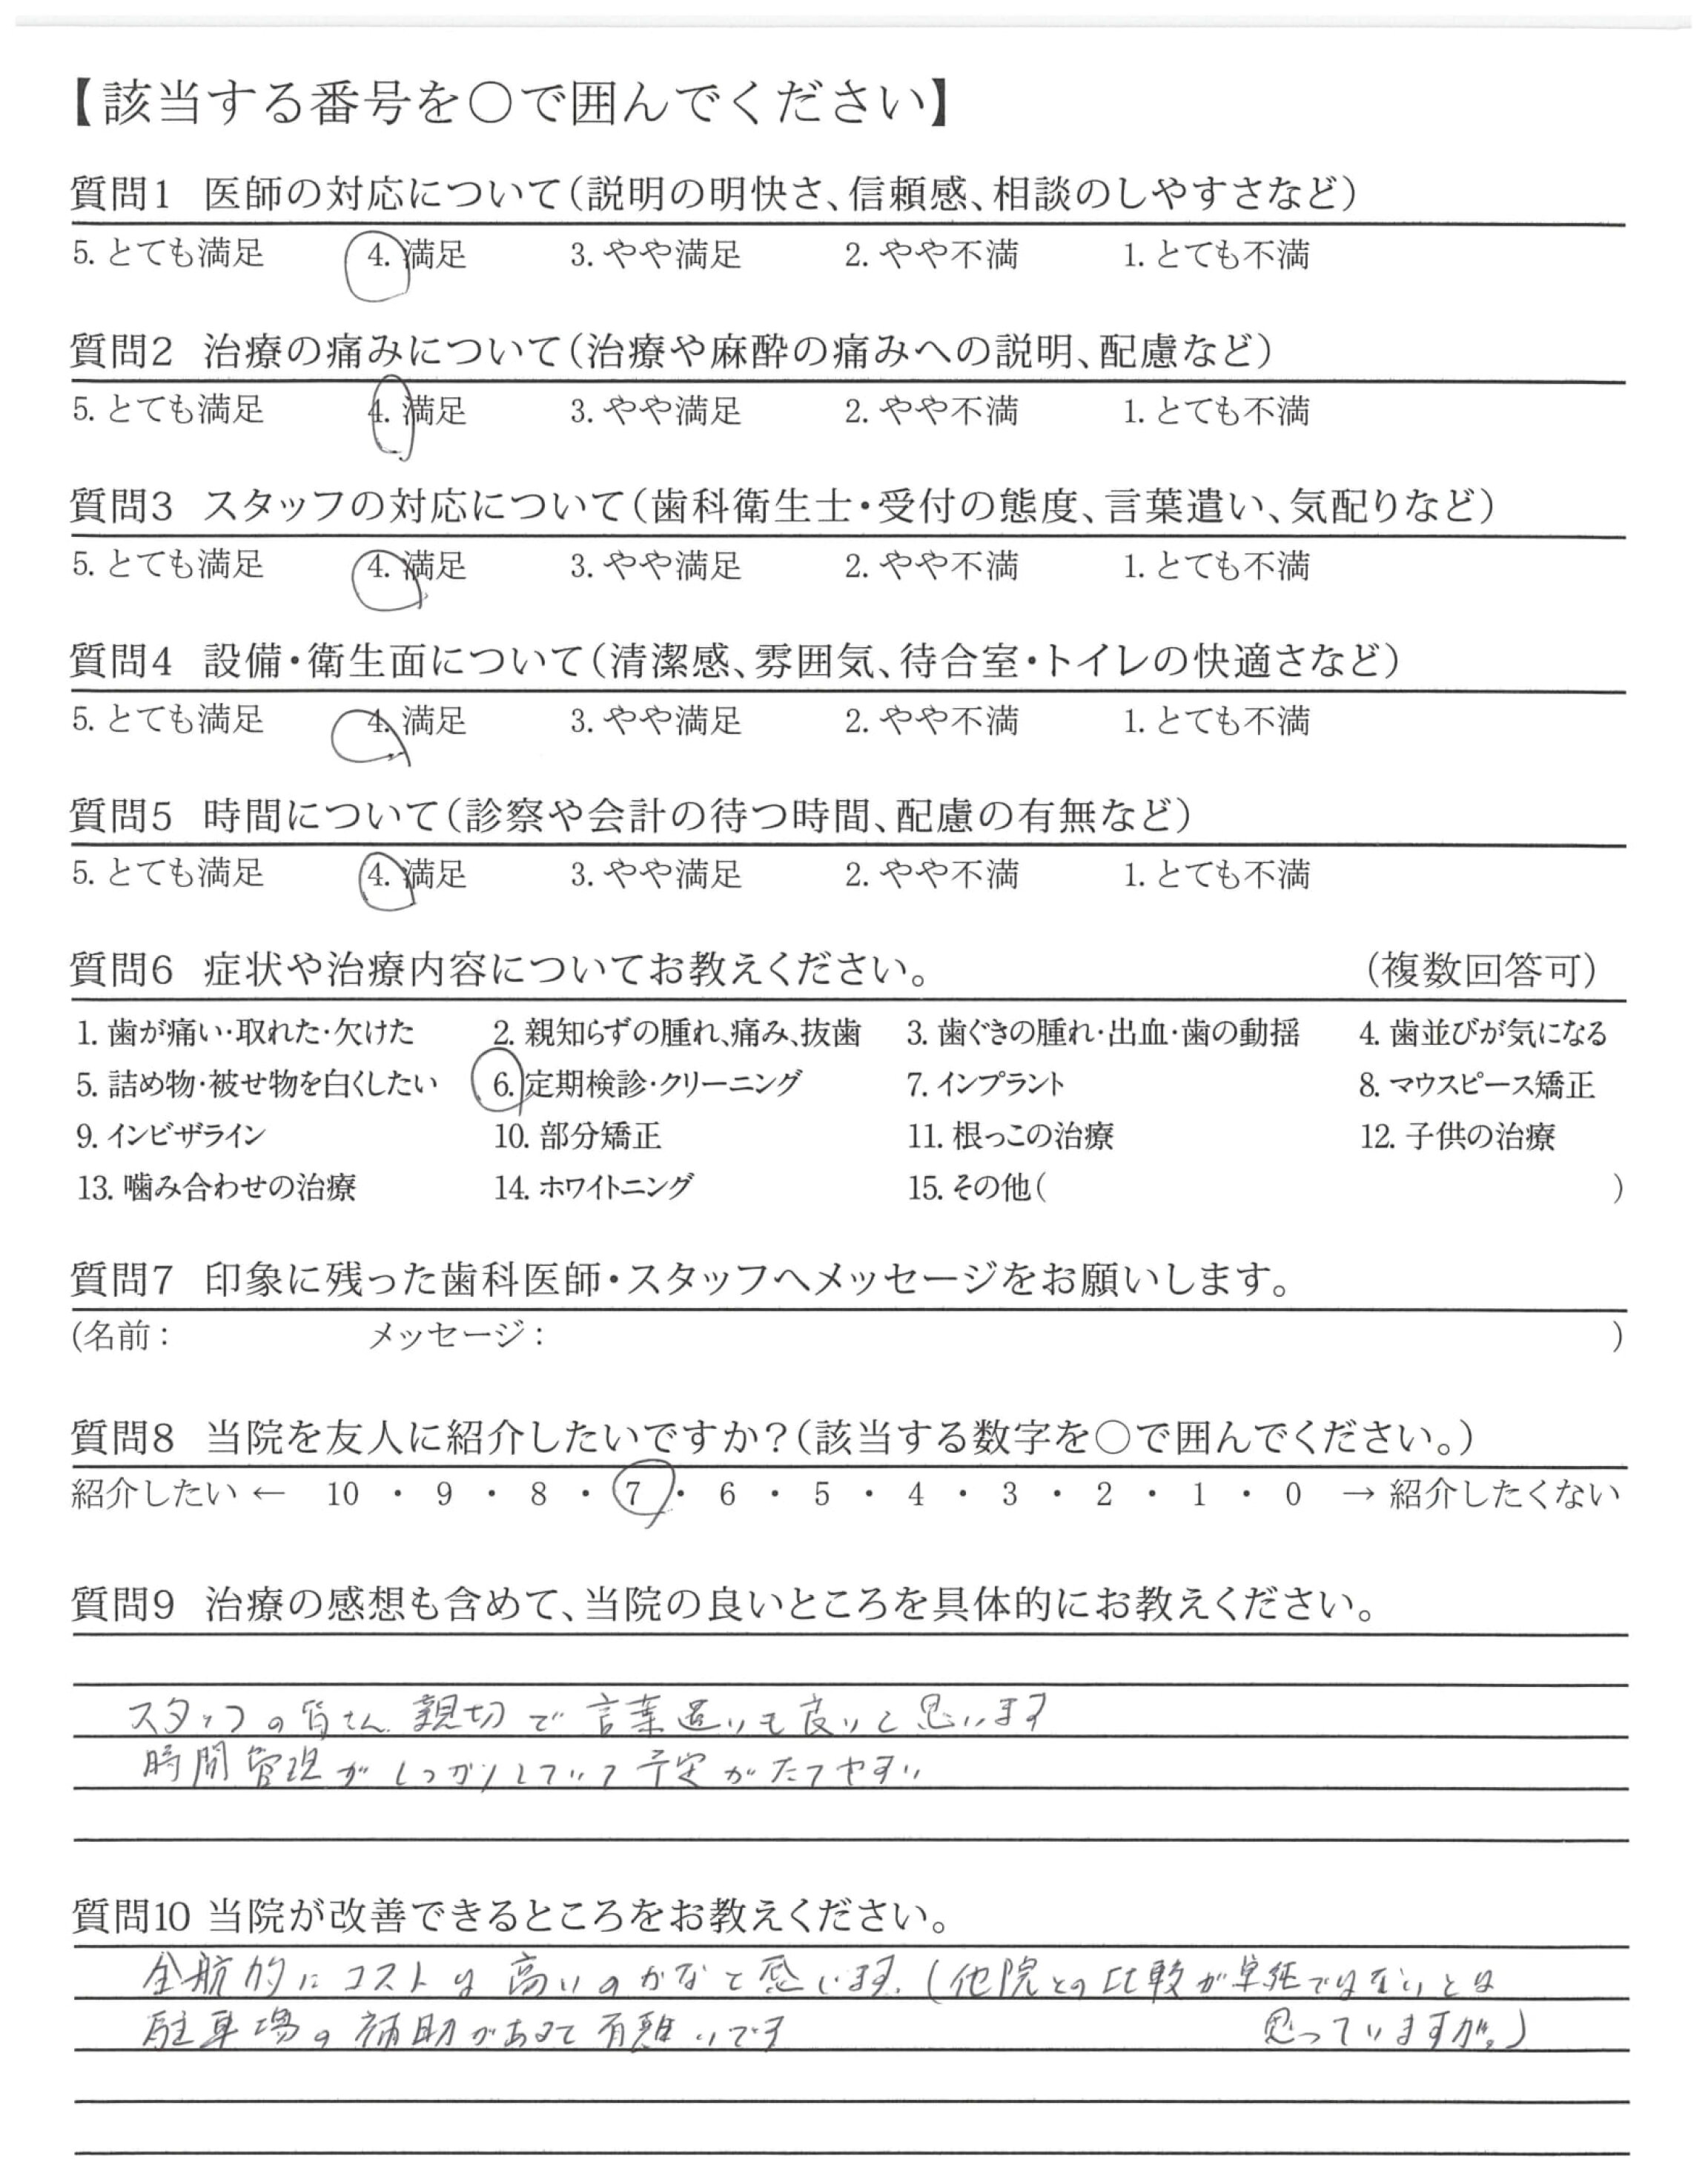 【該当する番号を○で囲んでください】
質問1 医師の対応について(説明の明快さ、信頼感、相談のしやすさなど)
5. とても満足 4. 満足 3. やや満足 2. やや不満 1. とても不満
質問2 治療の痛みについて(治療や麻酔の痛みへの説明、配慮など)
5. とても満足 4. 満足 3. やや満足 2. やや不満 1. とても不満
質問3 スタッフの対応について(歯科衛生士・受付の態度、言葉遣い、気配りなど)
5. とても満足 4. 満足 3. やや満足 2. やや不満 1. とても不満
質問4 設備・衛生面について(清潔感、雰囲気、待合室・トイレの快適さなど)
5. とても満足 4. 満足 3. やや満足 2. やや不満 1. とても不満
質問5 時間について(診察や会計の待つ時間、配慮の有無など)
5. とても満足 4. 満足 3. やや満足 2. やや不満 1. とても不満
質問6 症状や治療内容についてお教えください。 (複数回答可)
1. 歯が痛い・取れた・欠けた 2. 親知らずの腫れ、痛み、抜歯 3. 歯ぐきの腫れ・出血・歯の動揺 4. 歯並びが気になる
5. 詰め物・被せ物を白くしたい 6. 定期検診・クリーニング 7. インプラント 8. マウスピース矯正
9. インビザライン 10. 部分矯正 11. 根っこの治療 12. 子供の治療
13. 噛み合わせの治療 14. ホワイトニング 15. その他( )
質問7 印象に残った歯科医師・スタッフへメッセージをお願いします。
(名前: メッセージ: )
質問8 当院を友人に紹介したいですか?(該当する数字を○で囲んでください。)
紹介したい ← 10 ・ 9 ・ 8 ・ 7 ・ 6 ・ 5 ・ 4 ・ 3 ・ 2 ・ 1 ・ 0 → 紹介したくない
質問9 治療の感想も含めて、当院の良いところを具体的にお教えください。
スタッフの皆さん 親切で言葉遣いも良いと思います
時間管理がしっかりしていて予定がたてやすい
質問10 当院が改善できるところをお教えください。
全般的にコストは高いのかなと感じます。(他院との比較が単純ではないとは
駐車場の補助があると有難いです 思っていますが。)